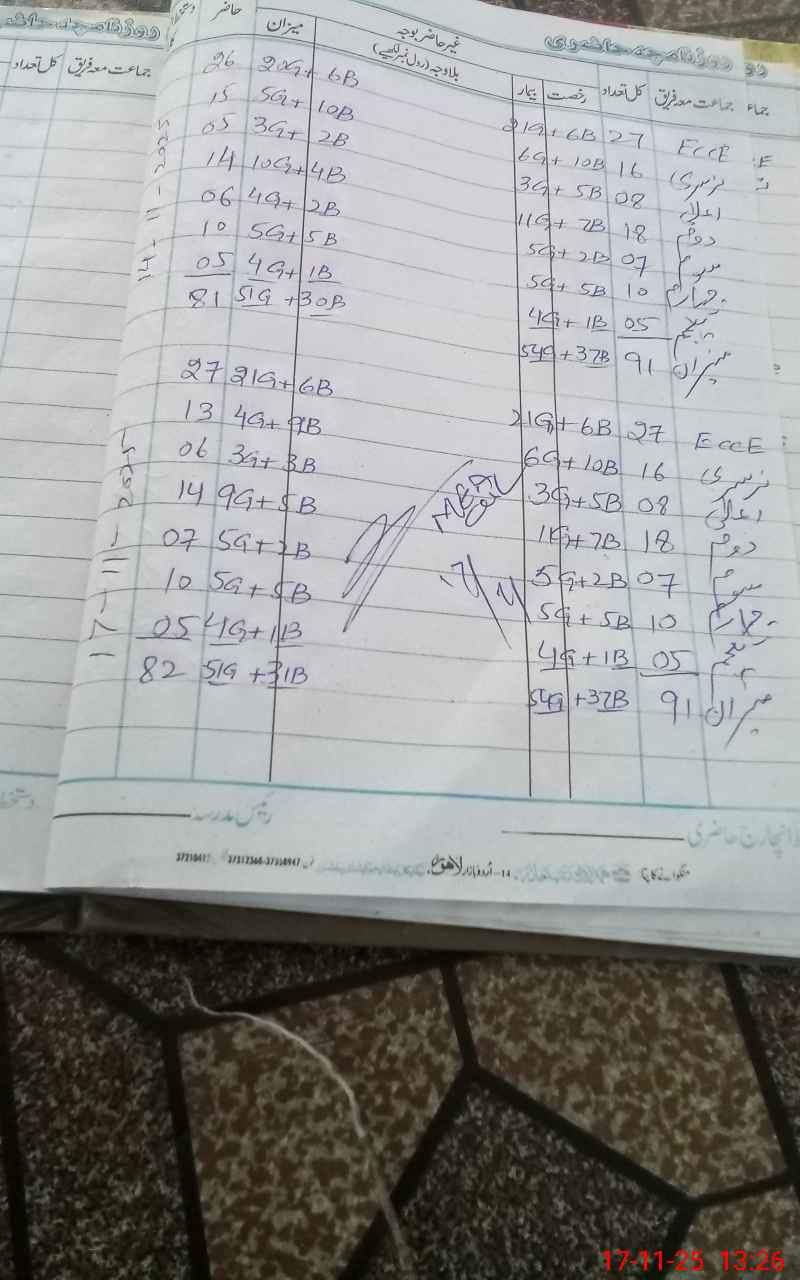 جماعت معہ فریق کل تعداد رخصت بیمار غیر حاضر بوجہ میزان حاضر
بلاوجہ (رول نمبر لکھیے)
14-11-2025
ECCE 27 21G+6B 20G+6B 26
نرسری 16 6G+10B 5G+10B 15
اعلیٰ 08 3G+5B 3G+2B 05
دوئم 18 11G+7B 10G+4B 14
سوئم 07 5G+2B 4G+2B 06
چہارم 10 5G+5B 5G+5B 10
پنجم 05 4G+1B 4G+1B 05
میزان 91 54G+37B 51G+30B 81
17-11-2025
ECCE 27 21G+6B 21G+6B 27
نرسری 16 6G+10B 4G+9B 13
اعلیٰ 08 3G+5B 3G+3B 06
دوئم 18 11G+7B 9G+5B 14
سوئم 07 5G+2B 5G+2B 07
چہارم 10 5G+5B 5G+5B 10
پنجم 05 4G+1B 4G+1B 05
میزان 91 54G+37B 51G+31B 82
انچارج حاضری
رئیس مدرسہ
14-اُردو بازار لاہور
جماعت معہ فریق کل تعداد
17-11-25 13:26